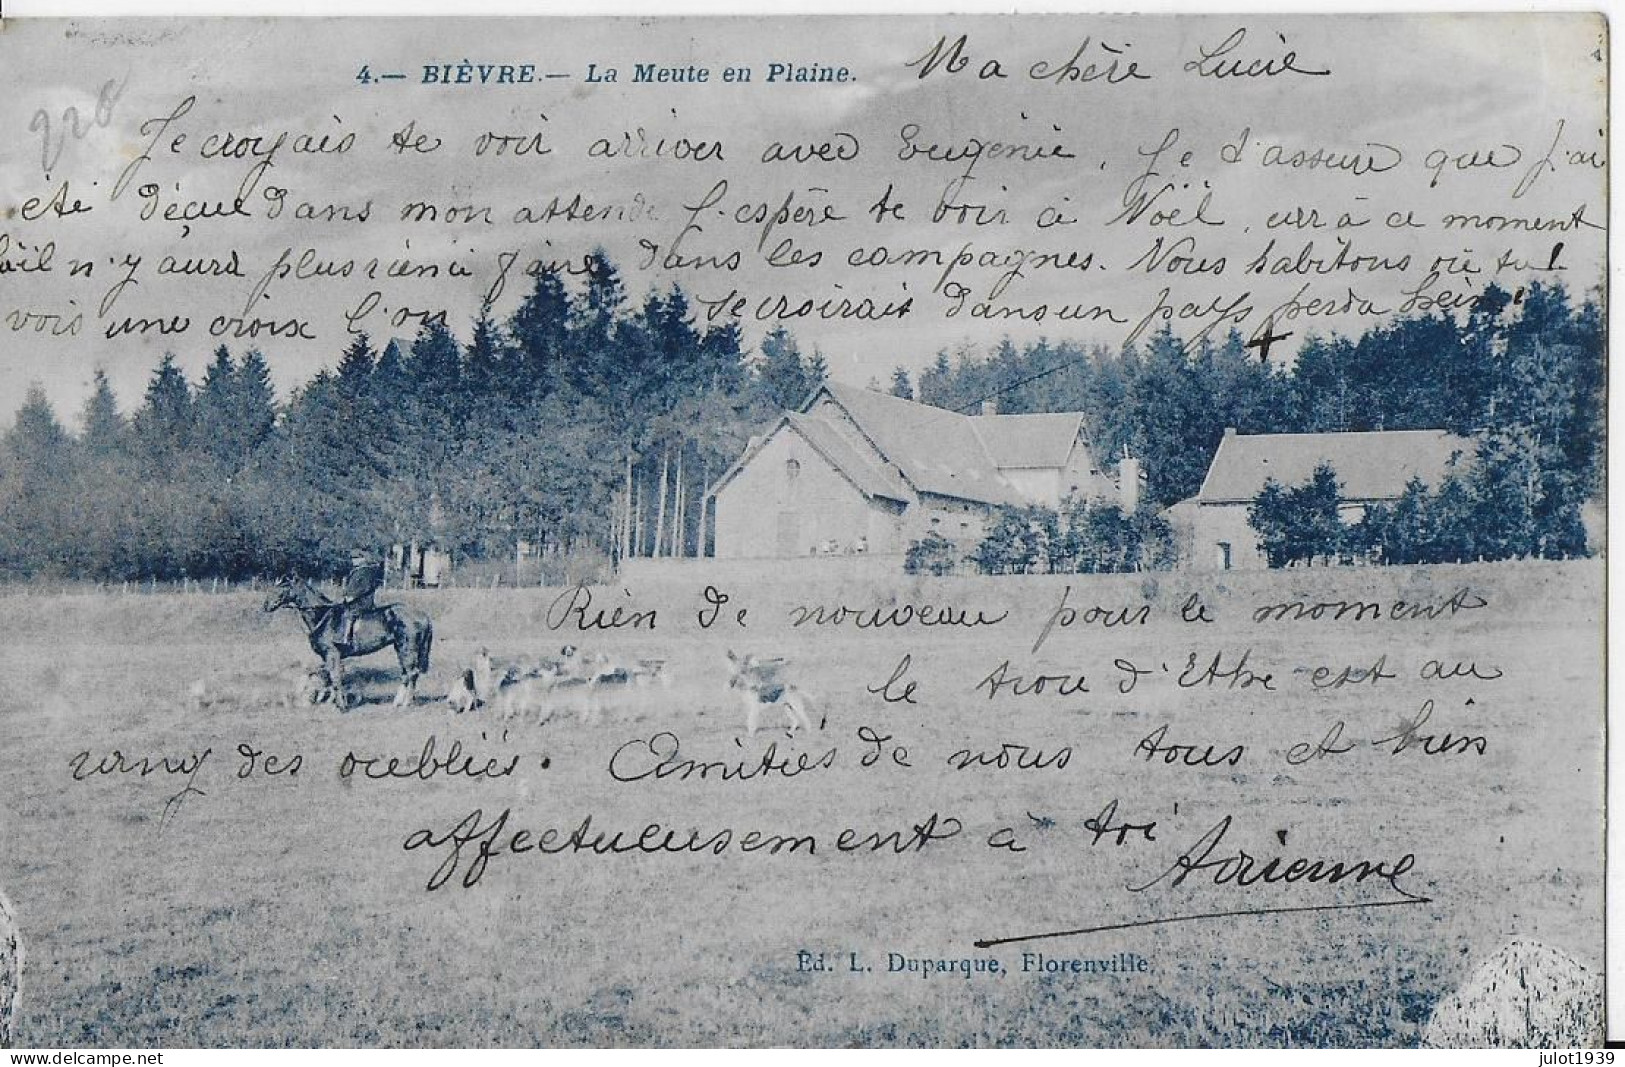 4.— BIÈVRE.— La Meute en Plaine.
Ma chère Lucie
228
Je croyais te voir arriver avec Eugénie, Je t'assure que j'ai
été déçue dans mon attende J'espère te voir à Noël, car à ce moment
il n'y aura plus rien à faire dans les campagnes. Nous habitons où tu
vois une croix l'on se croirait dans un pays perdu hein!
Rien de nouveau pour le moment
le trou d'Ethe est au
rang des oubliés. Amitiés de nous tous et bien
affectueusement à toi
Adrienne
Éd. L. Duparque, Florenville.
julot1939